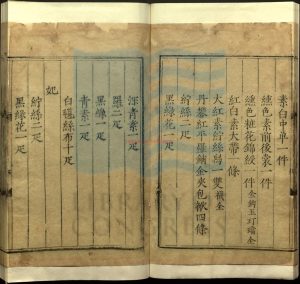 素白中單一件
纁色素前後裳一件
纁色粧花錦綬一件 金鈎玉玎璫全
紅白素大帶一條
大紅素紵絲舄一雙襪全
丹礬紅平羅銷金夾包袱四條
紵絲二疋
黑綠花一疋
深青素一疋
羅二疋
黑綠一疋
青素一疋
白㲲絲布十疋
妃
紵絲二疋
黑綠花一疋